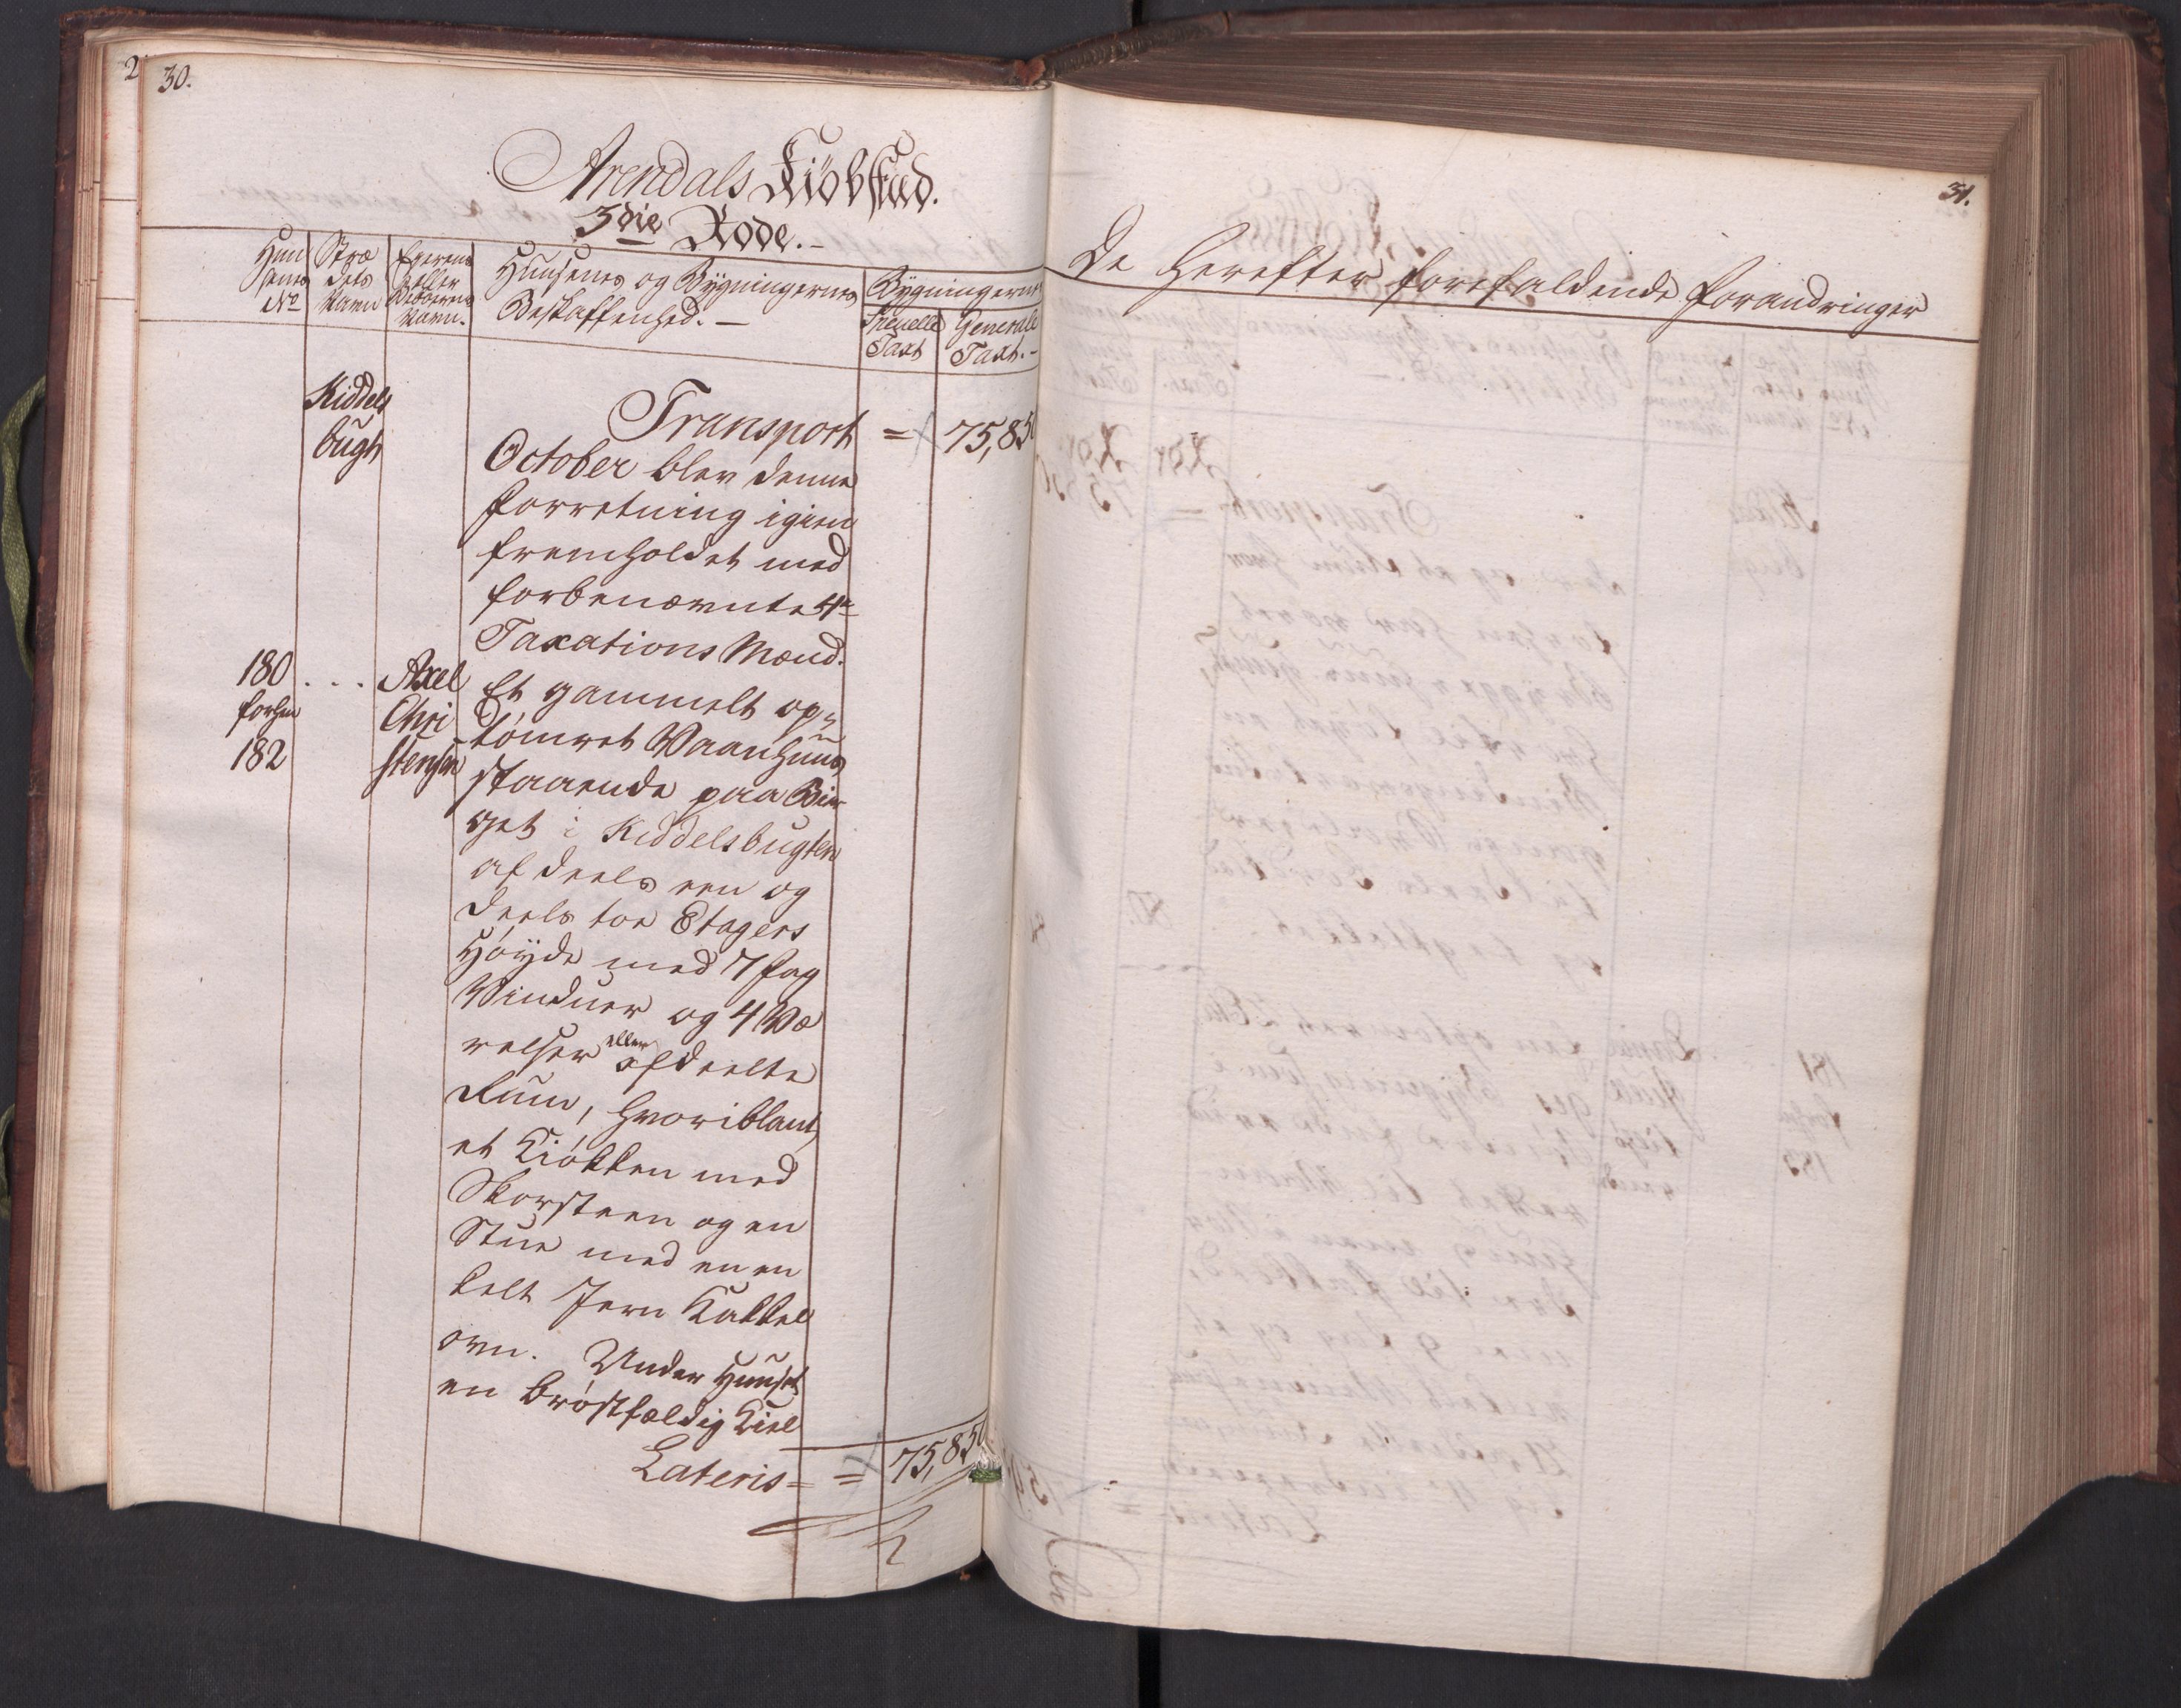 30.
Arendals Kiöbstad.
3die Rode.-
Huusenes No
Strædets Navn
Eyerens eller Beboerens Navn.
Huusenes og Bygningernes Beskaffenhed.-
Bygningernes
Specielle Taxt
Generale Taxt.-
Kiddels
bugt
Transport = 75,850
October blev denne
Forretning igien
fremholdet med
forbenævnte 4re
Taxations Mænd.
180 . . . Axel
forhen Chri
182 stensen
Et gammelt op-
tömret Vaanhuus
staaende paa Bier
get i Kiddelsbugten
af deels een og
deels toe Etagers
Höyde med 7 Fag
Vinduer og 4 Væ
relser eller afdeelte
Rum, hvoriblant
et Kiökken med
Skorsteen og en
Stue med en en
kelt Jern Kakkel
ovn. Under Huuset
en bröstfældig Kiel
Lateris = = 75,850
31.
De herefter forefaldende Forandringer